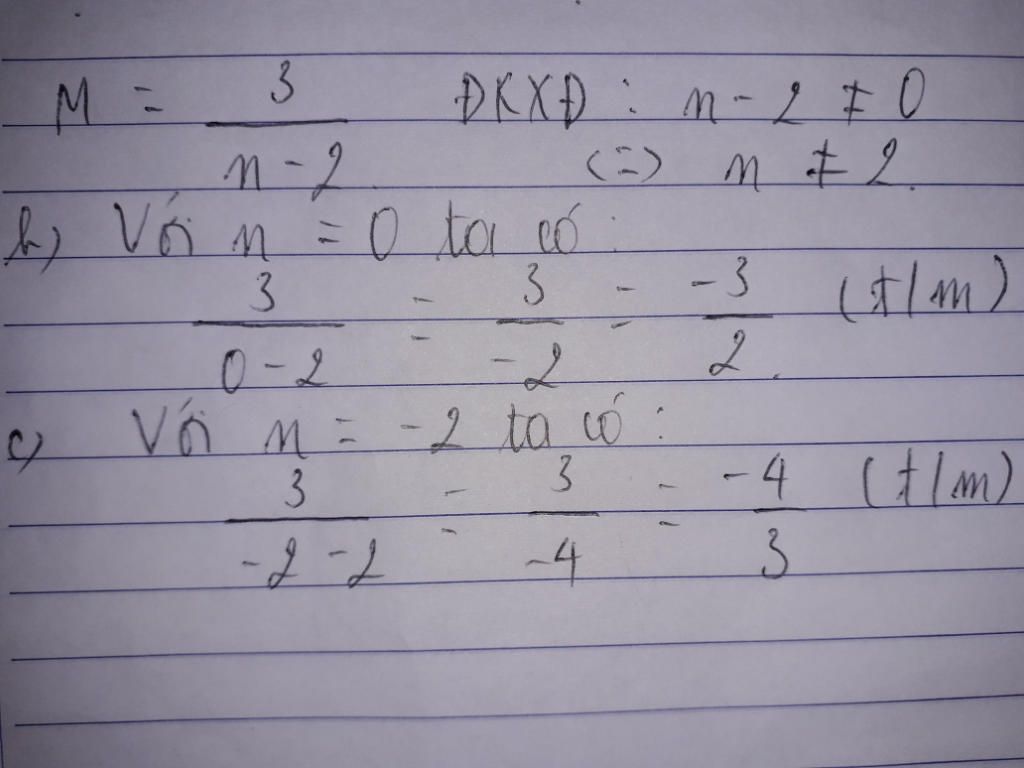 M = 3/(n - 2) ĐKXĐ : n - 2 ≠ 0
(=) n ≠ 2.
b) Với n = 0 ta có :
3/(0 - 2) = 3/(-2) = -3/2. (t/m)
c) Với n = -2 ta có :
3/(-2 - 2) = 3/(-4) = -4/3 (t/m)